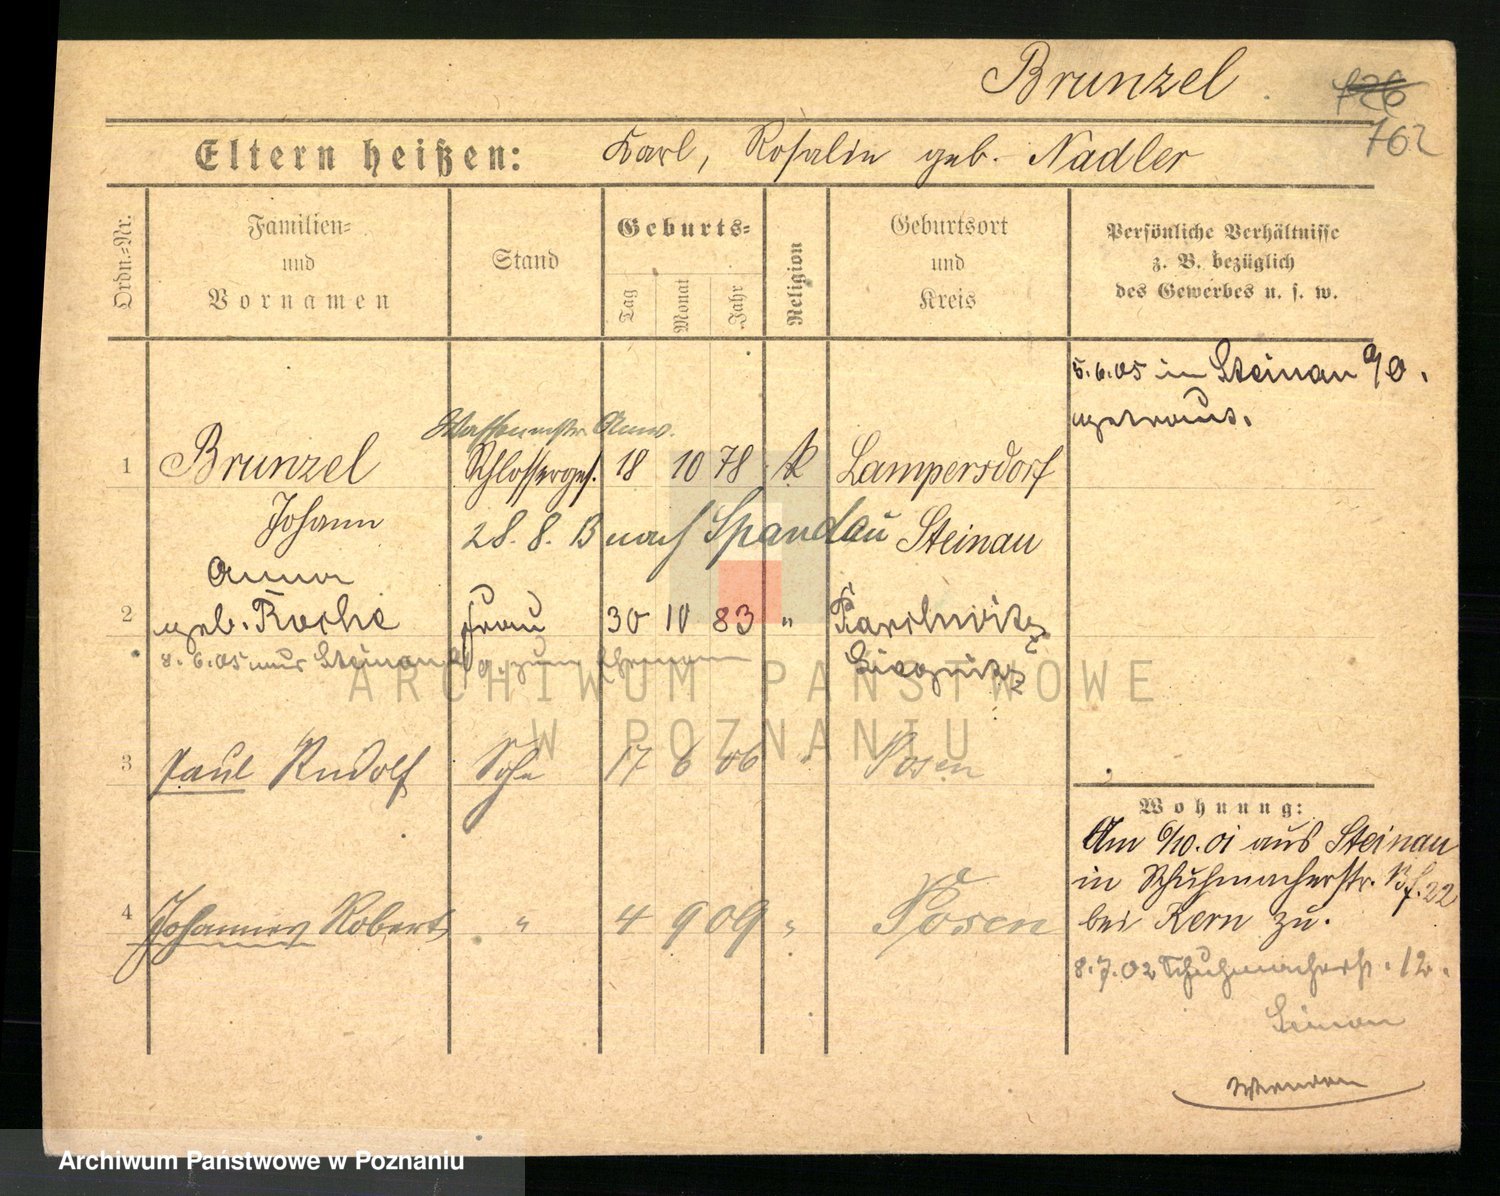 Brunzel
726
762
Eltern heißen: Karl, Rosalie geb. Nadler
Ordn.-Nr.
Familien-
und
Vornamen
Stand
Geburts-
Tag
Monat
Jahr
Religion
Geburtsort
und
Kreis
Persönliche Verhältnisse
z. B. bezüglich
des Gewerbes u. s. w.
5.6.05 in Steinau a/O.
getraut.
Waffenmstr. Anw.
1 Brunzel Schlosserges. 18 10 78 k Lampersdorf
Johann 28. 8. 13 nach Spandau Steinau
Anna
2 geb. Frau 30 10 83 "
8.6.05 aus Steinau zum Ehemann Liegnitz
3 Paul Rudolf Sohn 17 6 06 " Posen
4 Johannes Robert " 4 9 09 " Posen
Wohnung:
Am 6/10.01 aus Steinau
in Schuhmacherstr. 22
bei Kern zu.
8.7.02 Schuhmacherstr. 12.
Wenden
ARCHIWUM PAŃSTWOWE
W POZNANIU
Archiwum Państwowe w Poznaniu